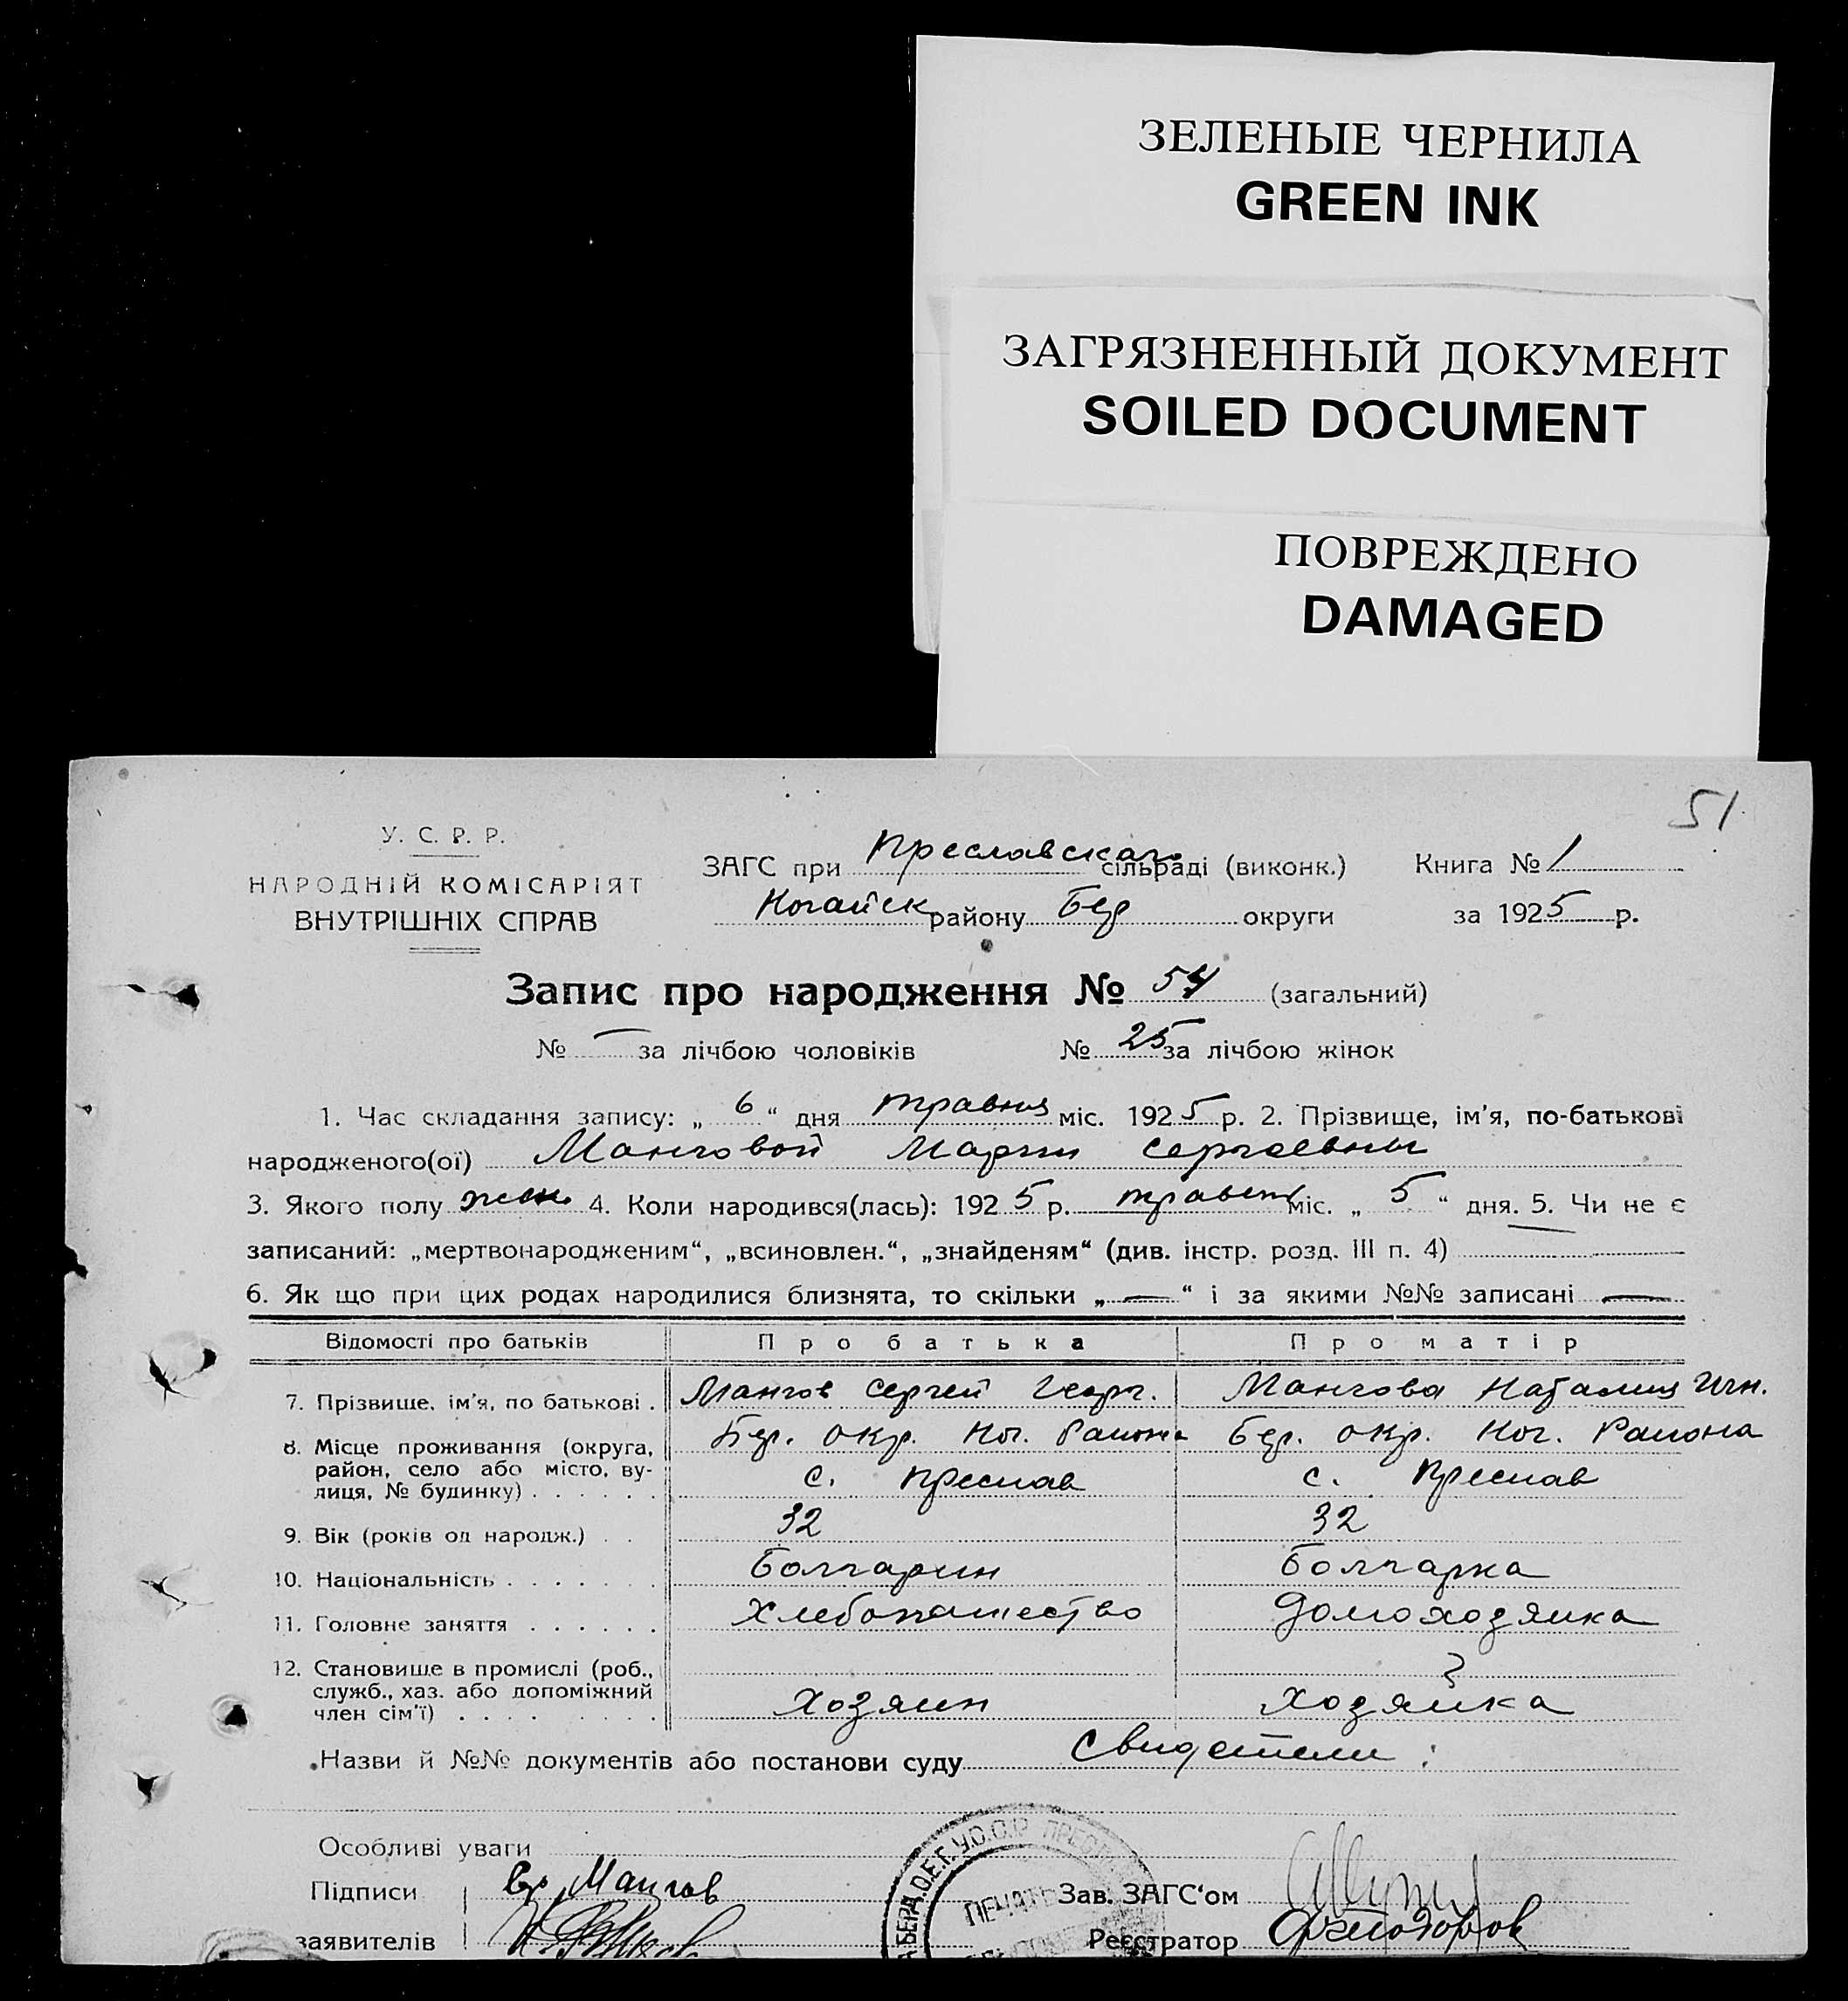 ЗЕЛЕНЫЕ ЧЕРНИЛА
GREEN INK
ЗАГРЯЗНЕННЫЙ ДОКУМЕНТ
SOILED DOCUMENT
ПОВРЕЖДЕНО
DAMAGED
51
У. С. Р. Р.
НАРОДНІЙ КОМІСАРІЯТ
ВНУТРІШНІХ СПРАВ
ЗАГС при Преславскаго сільраді (виконк.) Книга № 1
Ногайск району Бер округи за 1925 р.
Запис про народження № 54 (загальний)
№ — за лічбою чоловіків № 25 за лічбою жінок
1. Час складання запису: „ 6 “ дня травня міс. 1925 р. 2. Прізвище, ім'я, по-батькові
народженого(ої) Манговой Марии Сергеевны
3. Якого полу жен. 4. Коли народився(лась): 1925 р. травня міс. „ 5 “ дня. 5. Чи не є
записаний: „мертвонародженим“, „всиновлен.“, „знайденям“ (див. інстр. розд. III п. 4)
6. Як що при цих родах народилися близнята, то скільки „ — “ і за якими №№ записані —
Відомості про батьків Про батька Про матір
7. Прізвище, ім'я, по батькові . Мангов Сергей Георг. Мангова Наталия Игн.
8. Місце проживання (округа, Бер. окр. Ног. Района Бер. окр. Ног. Района
район, село або місто, ву-
лиця, № будинку) . . . . . . с. Преслав с. Преслав
9. Вік (років од народж.) . . 32 32
10. Національність . . . . . . . Болгарин Болгарка
11. Головне заняття . . . . . . Хлебопашество Домохозяйка
12. Становище в промислі (роб.,
служб., хаз. або допоміжний
член сім'ї) . . . . . . . . . Хозяин Хозяйка
Назви й №№ документів або постанови суду Свидетели :
Особливі уваги
Підписи Мангов Зав. ЗАГС'ом
заявителів Реєстратор
У.С.С.Р.
ПЕЧАТЬ